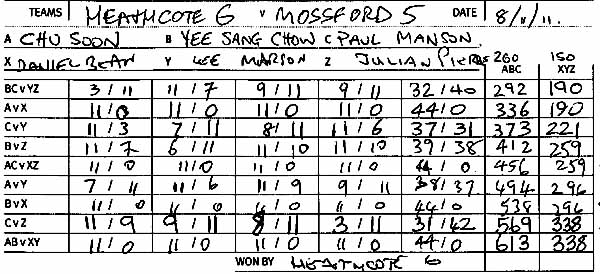 TEAMS HEATHCOTE 6 V MOSSFORD 5 DATE 8/11/11.
A CHU SOON B YEE SANG CHOW C PAUL MANSON
X DANIEL BEAN Y LEE MARSON Z JULIAN PIERRE 260 ABC 150 XYZ
BCvYZ 3 / 11 11 / 7 9 / 11 9 / 11 32 / 40 292 190
AvX 11 / 0 11 / 0 11 / 0 11 / 0 44 / 0 336 190
CvY 11 / 3 7 / 11 8 / 11 11 / 6 37 / 31 373 221
BvZ 11 / 7 6 / 11 11 / 10 11 / 10 39 / 38 412 259
ACvXZ 11 / 0 11 / 0 11 / 0 11 / 0 44 / 0 456 259
AvY 7 / 11 11 / 6 11 / 9 9 / 11 38 / 37 494 296
BvX 11 / 0 11 / 0 11 / 0 11 / 0 44 / 0 538 296
CvZ 11 / 9 9 / 11 8 / 11 3 / 11 31 / 42 569 338
ABvXY 11 / 0 11 / 0 11 / 0 11 / 0 44 / 0 613 338
WON BY HEATHCOTE 6